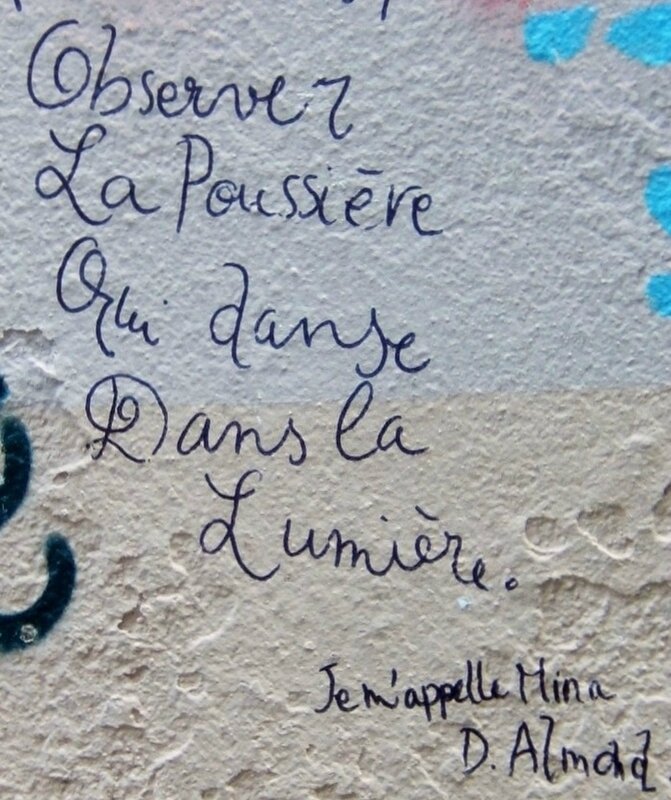 Observez
La Poussière
Qui danse
Dans la
Lumière.
Je m'appelle Mina
D. Almond